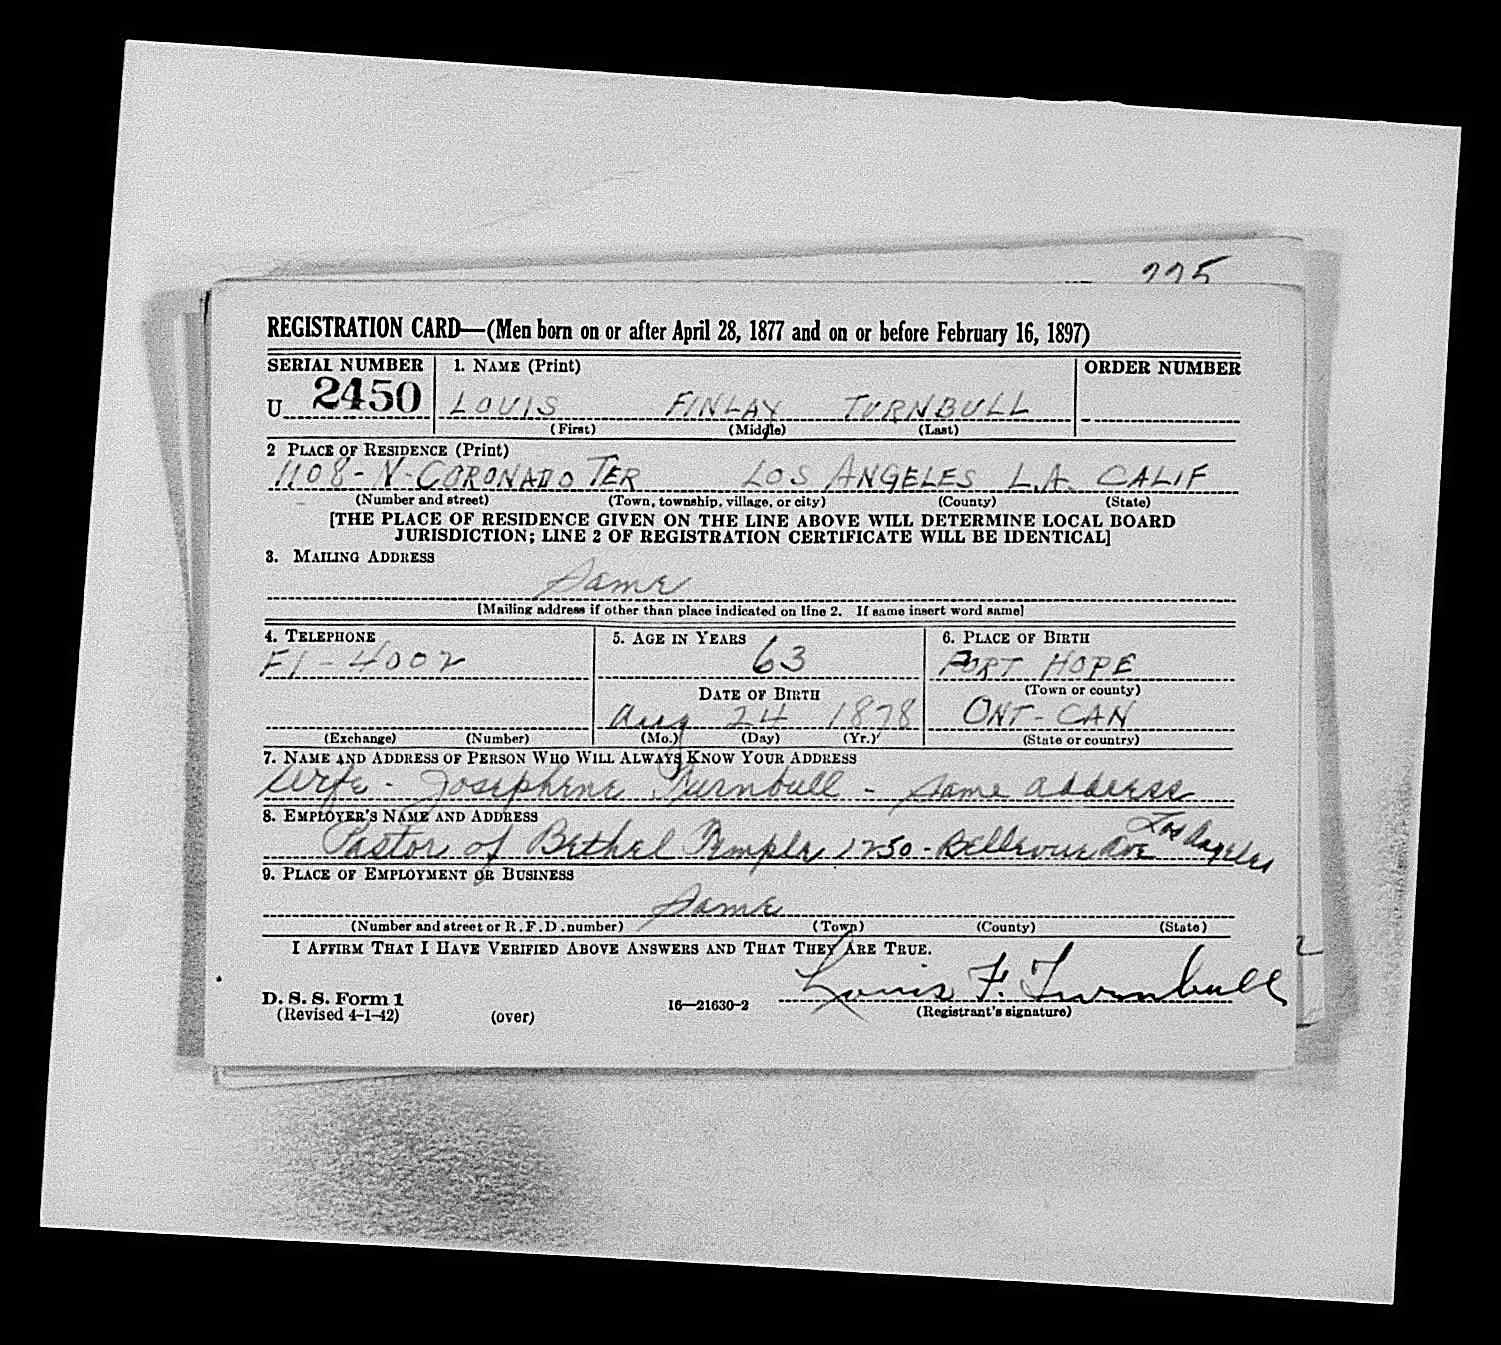 225
REGISTRATION CARD—(Men born on or after April 28, 1877 and on or before February 16, 1897)
SERIAL NUMBER 1. NAME (Print) ORDER NUMBER
U 2450 LOUIS FINLAY TURNBULL
(First) (Middle) (Last)
2 PLACE OF RESIDENCE (Print)
1108-N-CORONADO TER LOS ANGELES L.A. CALIF
(Number and street) (Town, township, village, or city) (County) (State)
[THE PLACE OF RESIDENCE GIVEN ON THE LINE ABOVE WILL DETERMINE LOCAL BOARD
JURISDICTION; LINE 2 OF REGISTRATION CERTIFICATE WILL BE IDENTICAL]
3. MAILING ADDRESS
Same
[Mailing address if other than place indicated on line 2. If same insert word same]
4. TELEPHONE 5. AGE IN YEARS 6. PLACE OF BIRTH
FI-4002 63 PORT HOPE
DATE OF BIRTH (Town or county)
Aug 24 1878 ONT-CAN
(Exchange) (Number) (Mo.) (Day) (Yr.) (State or country)
7. NAME AND ADDRESS OF PERSON WHO WILL ALWAYS KNOW YOUR ADDRESS
Wife - Josephine Turnbull - Same address
8. EMPLOYER'S NAME AND ADDRESS
Pastor of Bethel Temple 1250-Bellevue Ave Los Angeles
9. PLACE OF EMPLOYMENT OR BUSINESS
Same
(Number and street or R.F.D. number) (Town) (County) (State)
I AFFIRM THAT I HAVE VERIFIED ABOVE ANSWERS AND THAT THEY ARE TRUE.
Louis F. Turnbull
D. S. S. Form 1
(Revised 4-1-42) (over) 16—21630-2 (Registrant's signature)